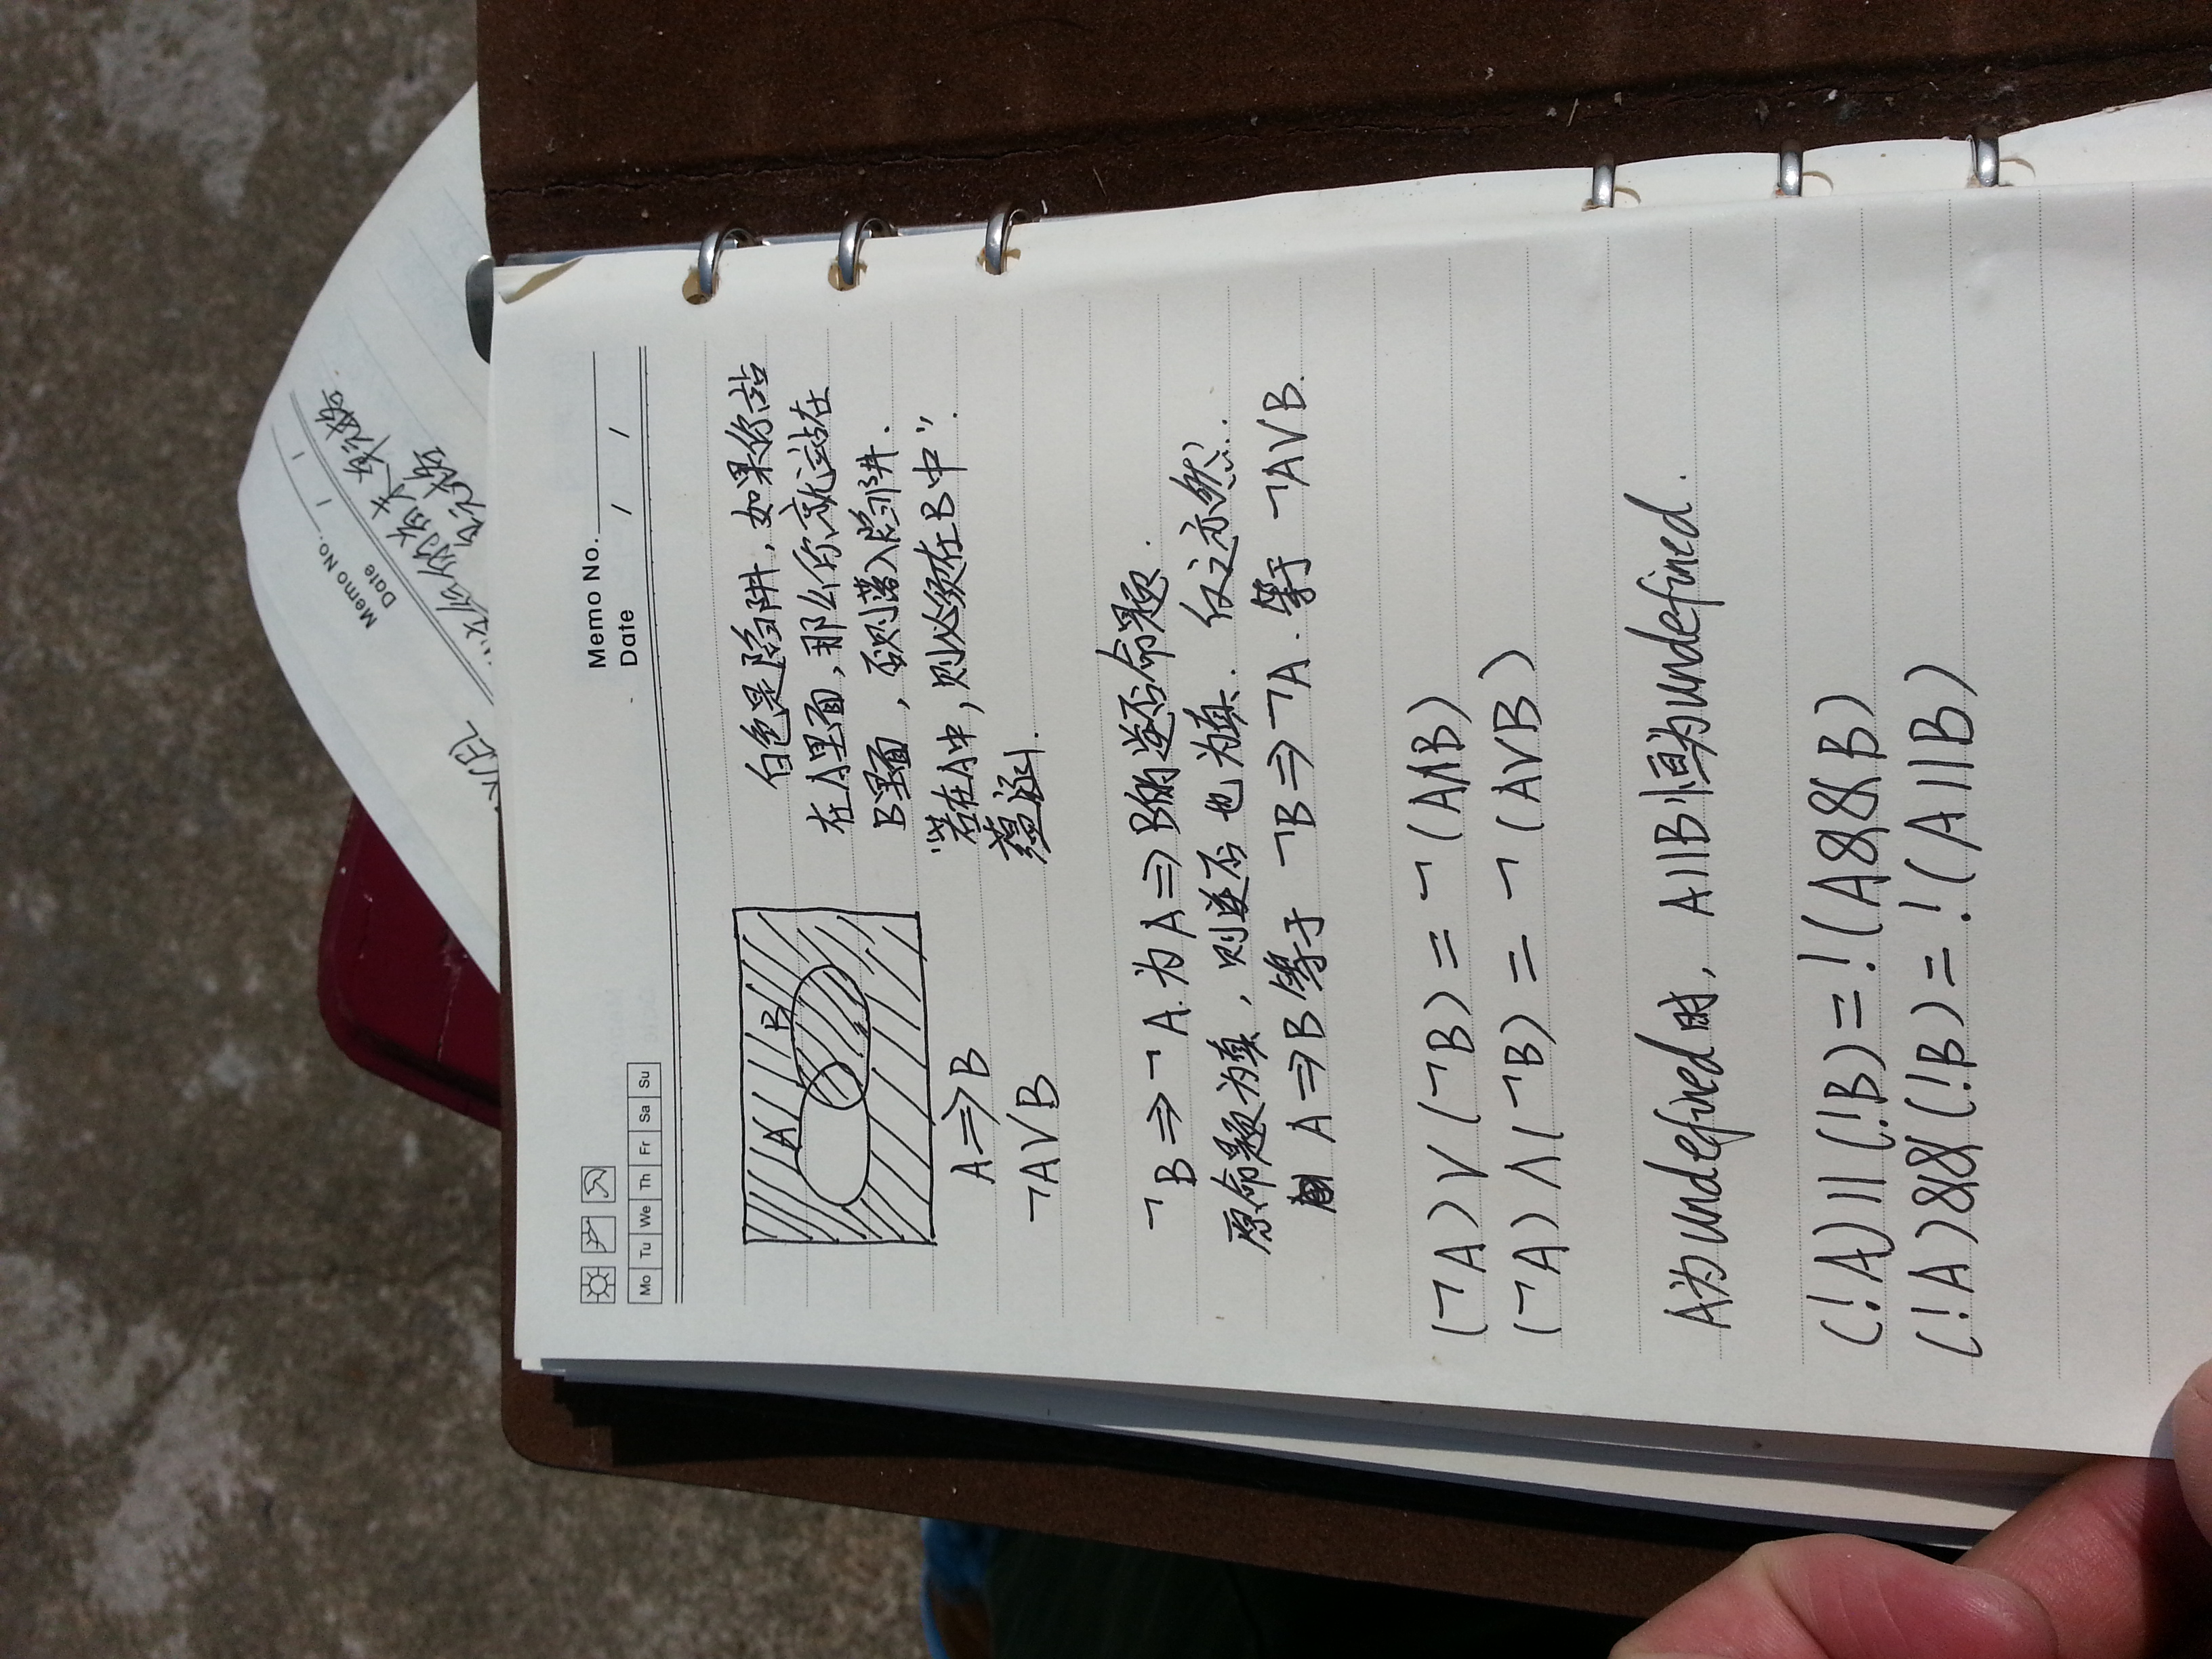 Memo No.
Date / /
EXCEL
的首末单元格
单元格
Memo No.
Date / /
Mo Tu We Th Fr Sa Su
A B
白色是陷阱,如果你站
在A里面,那么你就站在
B里面,否则落入陷阱.
"若在A中,则必须在B中".
蕴涵.
A⇒B
¬A∨B
¬B⇒¬A.为A⇒B的逆否命题.
原命题为真,则逆否也为真. 反之亦然?.
A⇒B等于 ¬B⇒¬A.等于 ¬A∨B.
(¬A)∨(¬B)=¬(A∧B)
(¬A)∧(¬B)=¬(A∨B)
A为undefined时, A||B恒为undefined.
(!A)||(!B)=!(A&&B)
(!A)&&(!B)=!(A||B)